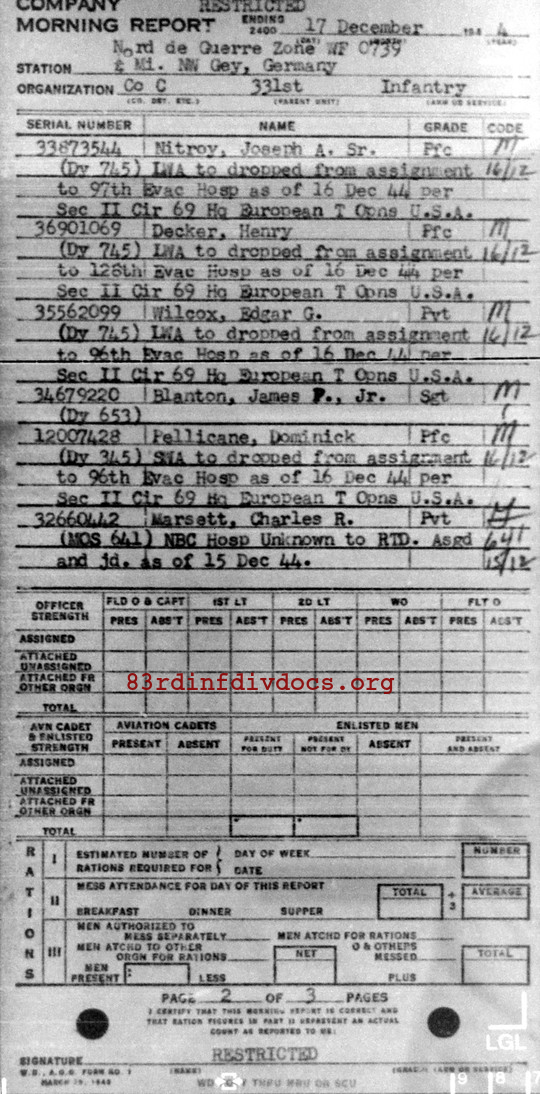 COMPANY RESTRICTED
MORNING REPORT ENDING 2400 17 December 194 4
(DAY) (YEAR)
Nord de Guerre Zone WF 0739
STATION & Mi. NW Gey, Germany
ORGANIZATION Co C 331st Infantry
(CO. DET. ETC.) (PARENT UNIT) (ARM OR SERVICE)
SERIAL NUMBER NAME GRADE CODE
33873544 Nitroy, Joseph A. Sr. Pfc M
(Dy 745) LWA to dropped from assignment 16/12
to 97th Evac Hosp as of 16 Dec 44 per
Sec II Cir 69 Hq European T Opns U.S.A.
36901069 Decker, Henry Pfc M
(Dy 745) LWA to dropped from assignment 16/12
to 128th Evac Hosp as of 16 Dec 44 per
Sec II Cir 69 Hq European T Opns U.S.A.
35562099 Wilcox, Edgar G. Pvt M
(Dy 745) LWA to dropped from assignment 16/12
to 96th Evac Hosp as of 16 Dec 44 per
Sec II Cir 69 Hq European T Opns U.S.A.
34679220 Blanton, James P., Jr. Sgt M
(Dy 653)
12007428 Pellicane, Dominick Pfc M
(Dy 345) SWA to dropped from assignment 16/12
to 96th Evac Hosp as of 16 Dec 44 per
Sec II Cir 69 Hq European T Opns U.S.A.
32660442 Marsett, Charles R. Pvt
(MOS 641) NBC Hosp Unknown to RTD. Asgd 641
and jd. as of 15 Dec 44. 15/12
OFFICER STRENGTH FLD O & CAPT 1ST LT 2D LT WO FLT O
PRES ABS'T PRES ABS'T PRES ABS'T PRES ABS'T PRES ABS'T
ASSIGNED
ATTACHED UNASSIGNED
ATTACHED FR OTHER ORGN
83rdinfdivdocs.org
TOTAL
AVN CADET & ENLISTED STRENGTH AVIATION CADETS ENLISTED MEN
PRESENT ABSENT PRESENT FOR DUTY PRESENT NOT FOR DY ABSENT PRESENT AND ABSENT
ASSIGNED
ATTACHED UNASSIGNED
ATTACHED FR OTHER ORGN
TOTAL
RATIONS
I ESTIMATED NUMBER OF RATIONS REQUIRED FOR DAY OF WEEK DATE NUMBER
II MESS ATTENDANCE FOR DAY OF THIS REPORT TOTAL ÷ 3 AVERAGE
BREAKFAST DINNER SUPPER
III MEN AUTHORIZED TO MESS SEPARATELY MEN ATCHD FOR RATIONS
MEN ATCHD TO OTHER ORGN FOR RATIONS NET O & OTHERS MESSED TOTAL
MEN PRESENT LESS PLUS
PAGE 2 OF 3 PAGES
I CERTIFY THAT THIS MORNING REPORT IS CORRECT AND
THAT RATION FIGURES IN PART II REPRESENT AN ACTUAL
COUNT AS REPORTED TO ME:
LGL
RESTRICTED
SIGNATURE
W.D., A.G.O. FORM NO. 1 (NAME) (GRADE) (ARM OR SERVICE)
MARCH 19, 1943
9 8 7